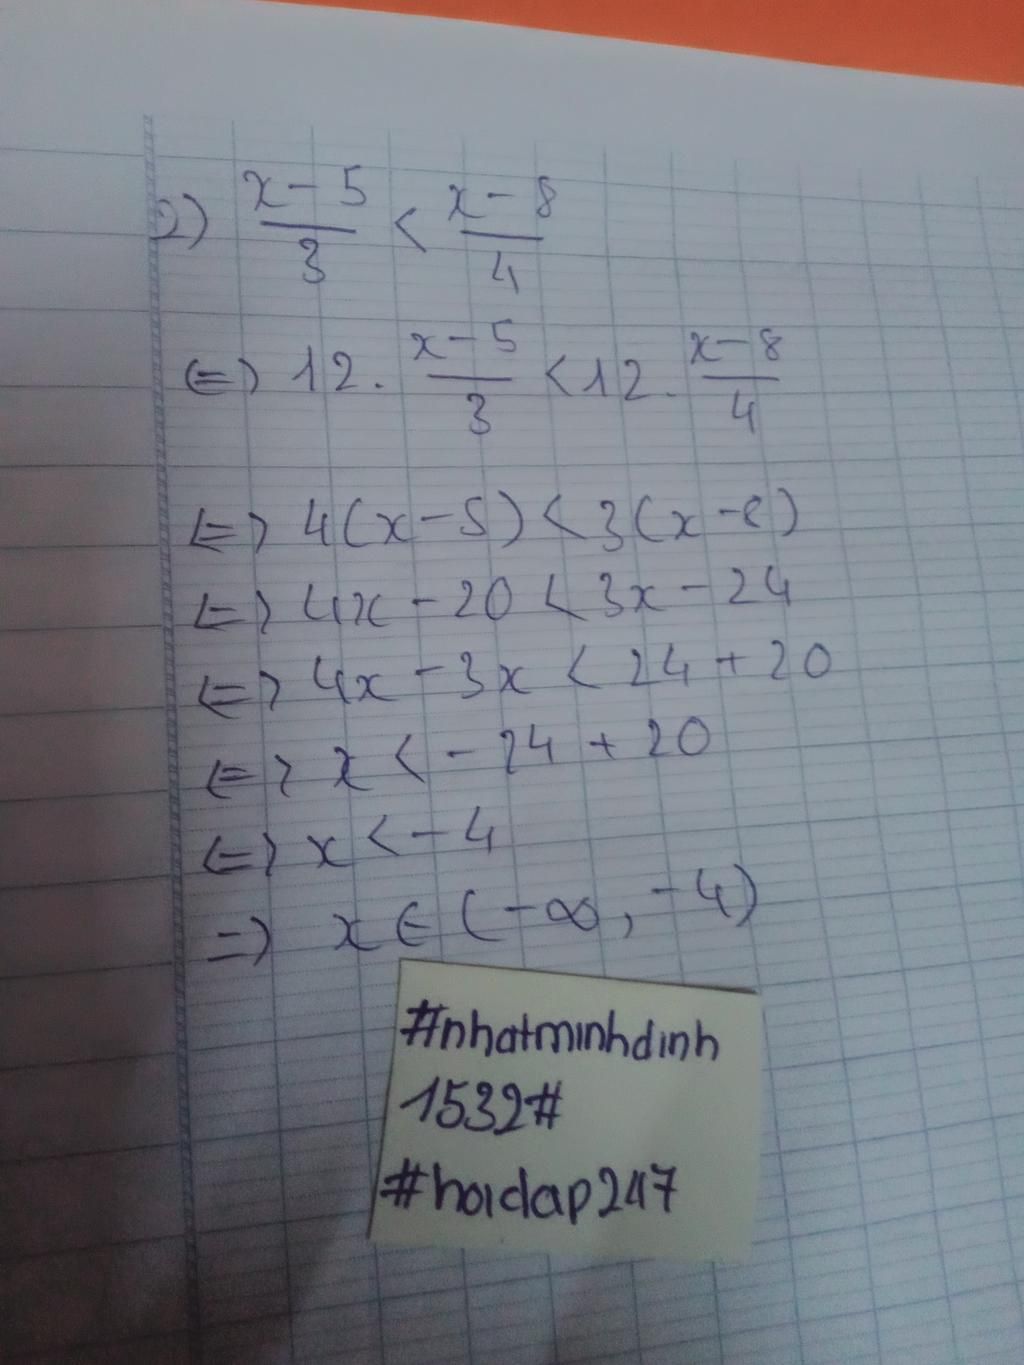 2) x - 5 / 3 < x - 8 / 4
<=> 12 . x - 5 / 3 < 12 . x - 8 / 4
<=> 4(x - 5) < 3(x - 8)
<=> 4x - 20 < 3x - 24
<=> 4x - 3x < 24 + 20
<=> x < - 24 + 20
<=> x < - 4
=> x ∈ (-∞, -4)
#nhatminhdinh
1532#
#hoidap247